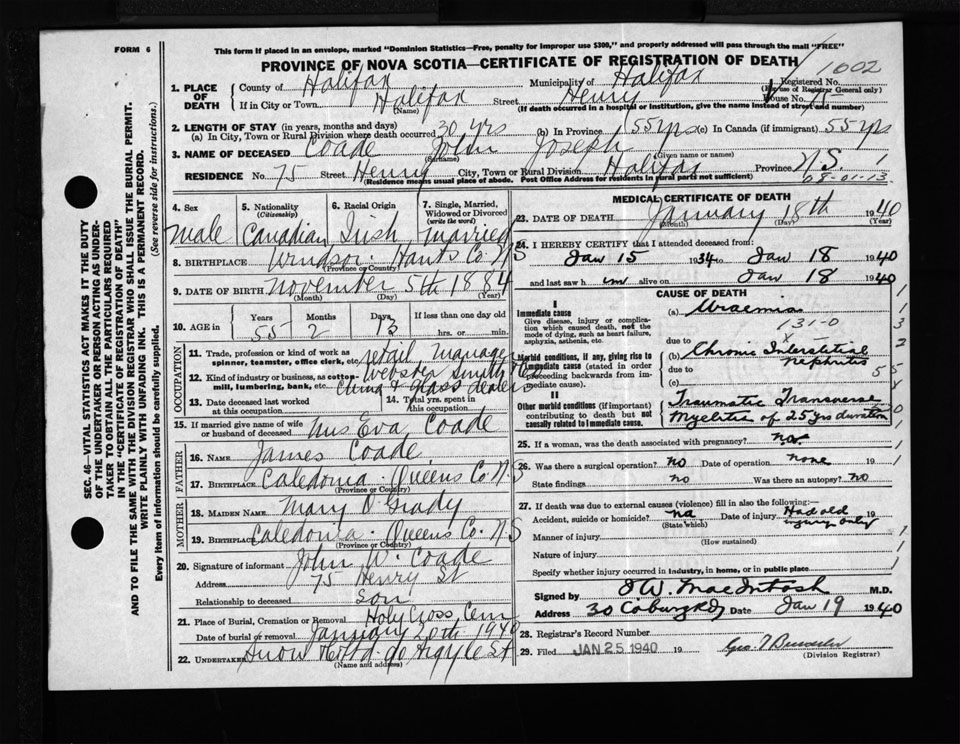 FORM 6
This form if placed in an envelope, marked "Dominion Statistics—Free, penalty for improper use $300," and properly addressed will pass through the mail "FREE"
PROVINCE OF NOVA SCOTIA—CERTIFICATE OF REGISTRATION OF DEATH
1002
1. PLACE OF DEATH
County of Halifax Municipality of Halifax Registered No.
(For use of Registrar General only)
If in City or Town Halifax Street Henry House No. 75
(Name) (If death occurred in a hospital or institution, give the name instead of street and number)
2. LENGTH OF STAY (in years, months and days)
(a) In City, Town or Rural Division where death occurred 30 yrs (b) In Province 55 yrs (c) In Canada (if immigrant) 55 yrs
3. NAME OF DECEASED Coade John Joseph
(Surname) (Given name or names)
RESIDENCE No. 75 Street Henry City, Town or Rural Division Halifax Province N S
(Residence means usual place of abode. Post Office Address for residents in rural parts not sufficient)
08-01-13
4. Sex Male
5. Nationality (Citizenship) Canadian
6. Racial Origin Irish
7. Single, Married, Widowed or Divorced (write the word) Married
8. BIRTHPLACE Windsor Hants Co. N S
(Province or Country)
9. DATE OF BIRTH November 5th 1884
(Month) (Day) (Year)
10. AGE in Years 55 Months 2 Days 13 If less than one day old hrs. or min.
OCCUPATION
11. Trade, profession or kind of work as spinner, teamster, office clerk, etc. retail manager
12. Kind of industry or business, as cotton-mill, lumbering, bank, etc. Webster Smith & Co China & glass dealers
13. Date deceased last worked at this occupation
14. Total yrs. spent in this occupation
15. If married give name of wife or husband of deceased Mrs Eva Coade
FATHER
16. NAME James Coade
17. BIRTHPLACE Caledonia Queens Co. N S
(Province or Country)
MOTHER
18. MAIDEN NAME Mary O'Grady
19. BIRTHPLACE Caledonia Queens Co. N S
(Province or Country)
20. Signature of informant John W. Coade
Address 75 Henry St
Relationship to deceased Son
21. Place of Burial, Cremation or Removal Holy Cross Cem
Date of burial or removal January 20th 1940
22. UNDERTAKER Snow & Co Ltd. Argyle St
(Name and address)
MEDICAL CERTIFICATE OF DEATH
23. DATE OF DEATH January 18th 1940
(Month) (Day) (Year)
24. I HEREBY CERTIFY that I attended deceased from:
Jan 15 1934 to Jan 18 1940
and last saw h im alive on Jan 18 1940
CAUSE OF DEATH
I
Immediate cause
Give disease, injury or complication which caused death, not the mode of dying, such as heart failure, asphyxia, asthenia, etc.
(a) Uraemia
131-0
due to
Morbid conditions, if any, giving rise to immediate cause (stated in order proceeding backwards from immediate cause).
(b) Chronic Interstitial Nephritis
due to
(c)
II
Other morbid conditions (if important) contributing to death but not causally related to immediate cause.
Traumatic Transverse
Myelitis of 25 yrs duration
25. If a woman, was the death associated with pregnancy?
26. Was there a surgical operation? no Date of operation none 19
State findings no Was there an autopsy? no
27. If death was due to external causes (violence) fill in also the following:—
Accident, suicide or homicide? na Date of injury Had old injury only
(State which)
Manner of injury
(How sustained)
Nature of injury
Specify whether injury occurred in industry, in home, or in public place
Signed by J W. MacIntosh M.D.
Address 30 Coburg Rd Date Jan 19 1940
28. Registrar's Record Number
29. Filed JAN 25 1940 19
(Division Registrar)
SEC. 46—VITAL STATISTICS ACT MAKES IT THE DUTY OF THE UNDERTAKER OR PERSON ACTING AS UNDERTAKER TO OBTAIN ALL THE PARTICULARS REQUIRED IN THE "CERTIFICATE OF REGISTRATION OF DEATH" AND TO FILE THE SAME WITH THE DIVISION REGISTRAR WHO SHALL ISSUE THE BURIAL PERMIT.
WRITE PLAINLY WITH UNFADING INK. THIS IS A PERMANENT RECORD.
Every item of information should be carefully supplied. (See reverse side for instructions.)